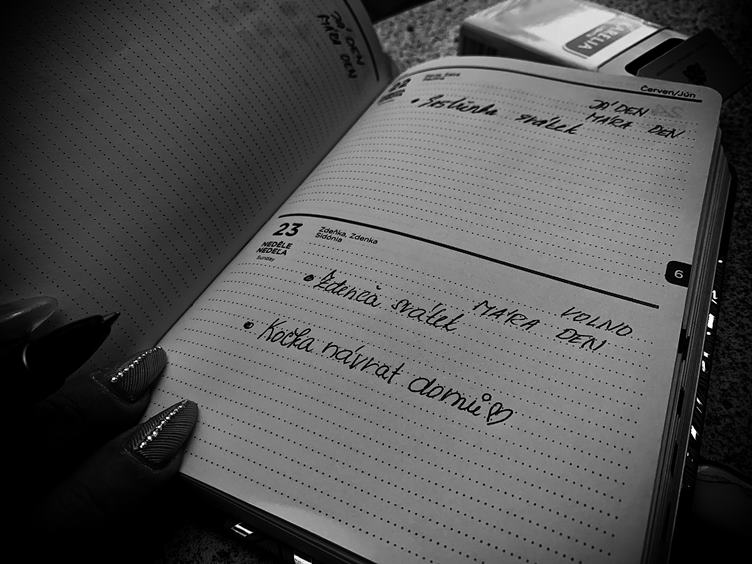 DEN
MÁRA DEN
KARELIA
Červen/Jún
JÁ DEN
svátek MÁRA DEN
23 Zdeňka, Zdenka
NEDĚLE Sidónia
NEDEĽA
Sunday
6
• svátek MÁRA VOLNO
DEN
• Kočka návrat domů♡